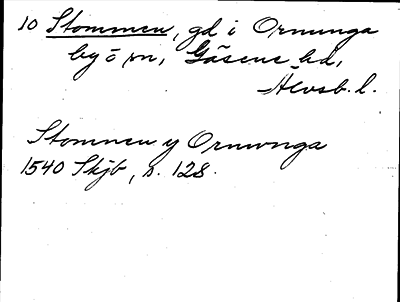 10 Stommen, gd i Ornunga
by o sn, Gäsene hd,
Älvsb. l.
Stommen y Ornwnga
1540 Skjb, s. 128.